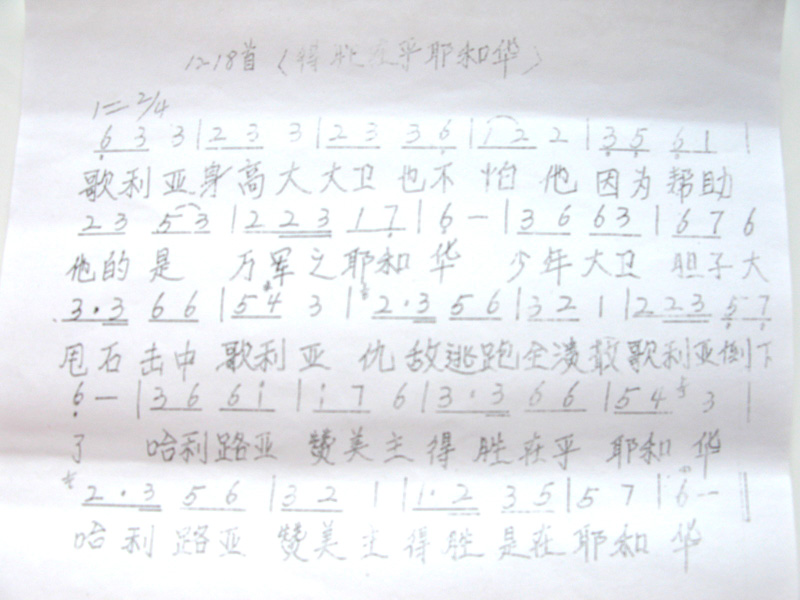 12-18首（得胜在乎耶和华）
1=2/4
6 3 3 | 2 3 3 | 2 3 3 6 | 1 2 2 | 3 5 6 1 |
歌利亚身高大大卫也不怕他因为帮助
2 3 5 3 | 2 2 3 1 7 | 6 — | 3 6 6 3 | 6 7 6
他的是 万军之耶和华 少年大卫 胆子大
3·3 6 6 | 5 4 3 | 2·3 5 6 | 3 2 1 | 2 2 3 5 7
甩石击中歌利亚 仇敌逃跑全溃散歌利亚倒下
6 — | 3 6 6 i | i 7 6 | 3·3 6 6 | 5 4 3 |
了 哈利路亚 赞美主得胜在乎 耶和华
2·3 5 6 | 3 2 1 | 1·2 3 5 | 5 7 | 6 — ‖
哈利路亚 赞美主得胜是在耶和华